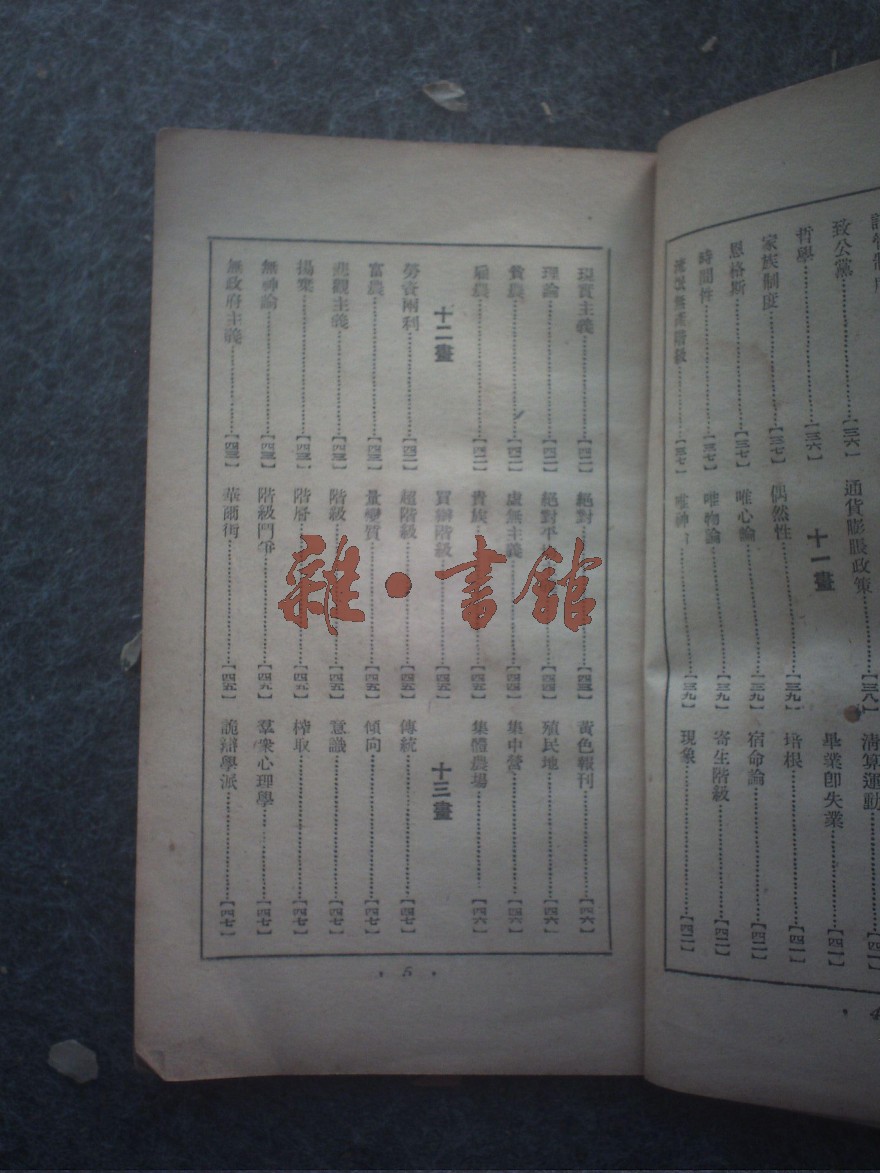 致公黨……【三六】
哲學……【三六】
家族制度……【三七】
恩格斯……【三七】
時間性……【三七】
通貨膨脹政策……【三八】
十一畫
偶然性……【三九】
唯心論……【三九】
唯物論……【三九】
清算運動……【四一】
畢業即失業……【四一】
培根……【四一】
宿命論……【四二】
寄生階級……【四二】
現象……【四二】
現實主義……【四二】
理論……【四二】
貧農……【四二】
雇農……【四二】
十二畫
勞資兩利……【四二】
富農……【四三】
悲觀主義……【四三】
揚棄……【四三】
無神論……【四三】
無政府主義……【四三】
絕對……【四三】
絕對平……【四四】
虛無主義……【四四】
貴族……【四五】
買辦階級……【四五】
超階級……【四五】
量變質……【四五】
階級……【四五】
階層……【四五】
階級鬥爭……
華爾街……【四五】
黃色報刊……【四六】
殖民地……【四六】
集中營……【四六】
集體農場……【四六】
十三畫
傳統……【四七】
傾向……【四七】
意識……【四七】
榨取……【四七】
羣衆心理學……【四七】
詭辯學派……【四七】
· 5 ·
雜·書館